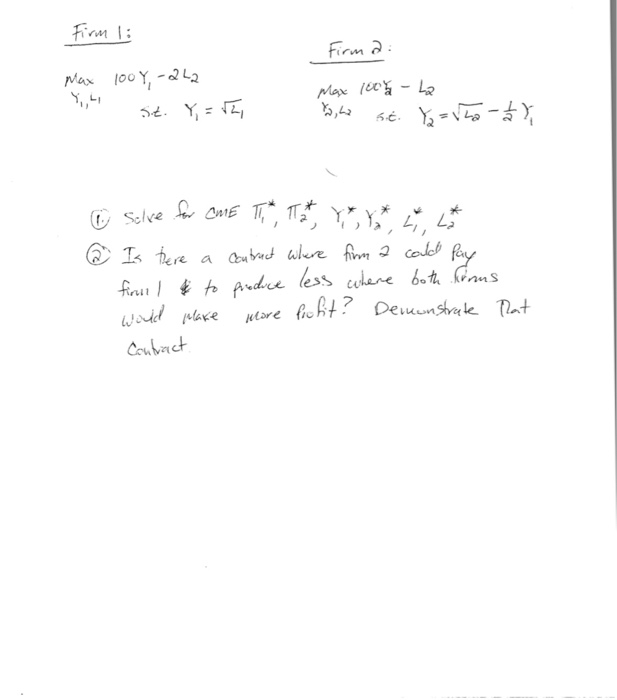 Firm 1:
Max 100Y₁ - 2L₂
Y₁, L₁
s.t. Y₁ = √L₁
Firm 2:
Max 100Y₂ - L₂
Y₂, L₂ s.t. Y₂ = √L₂ - ½ Y₁
① Solve for CME Π₁*, Π₂*, Y₁*, Y₂*, L₁*, L₂*
② Is there a contract where firm 2 could pay
firm 1 to produce less where both firms
would make more profit? Demonstrate that
contract